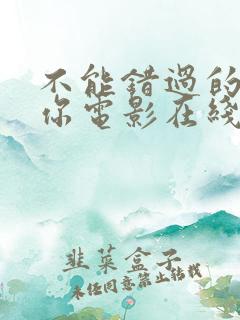 不能错过的
你电影在线
韭菜盒子
未经同意禁止转载